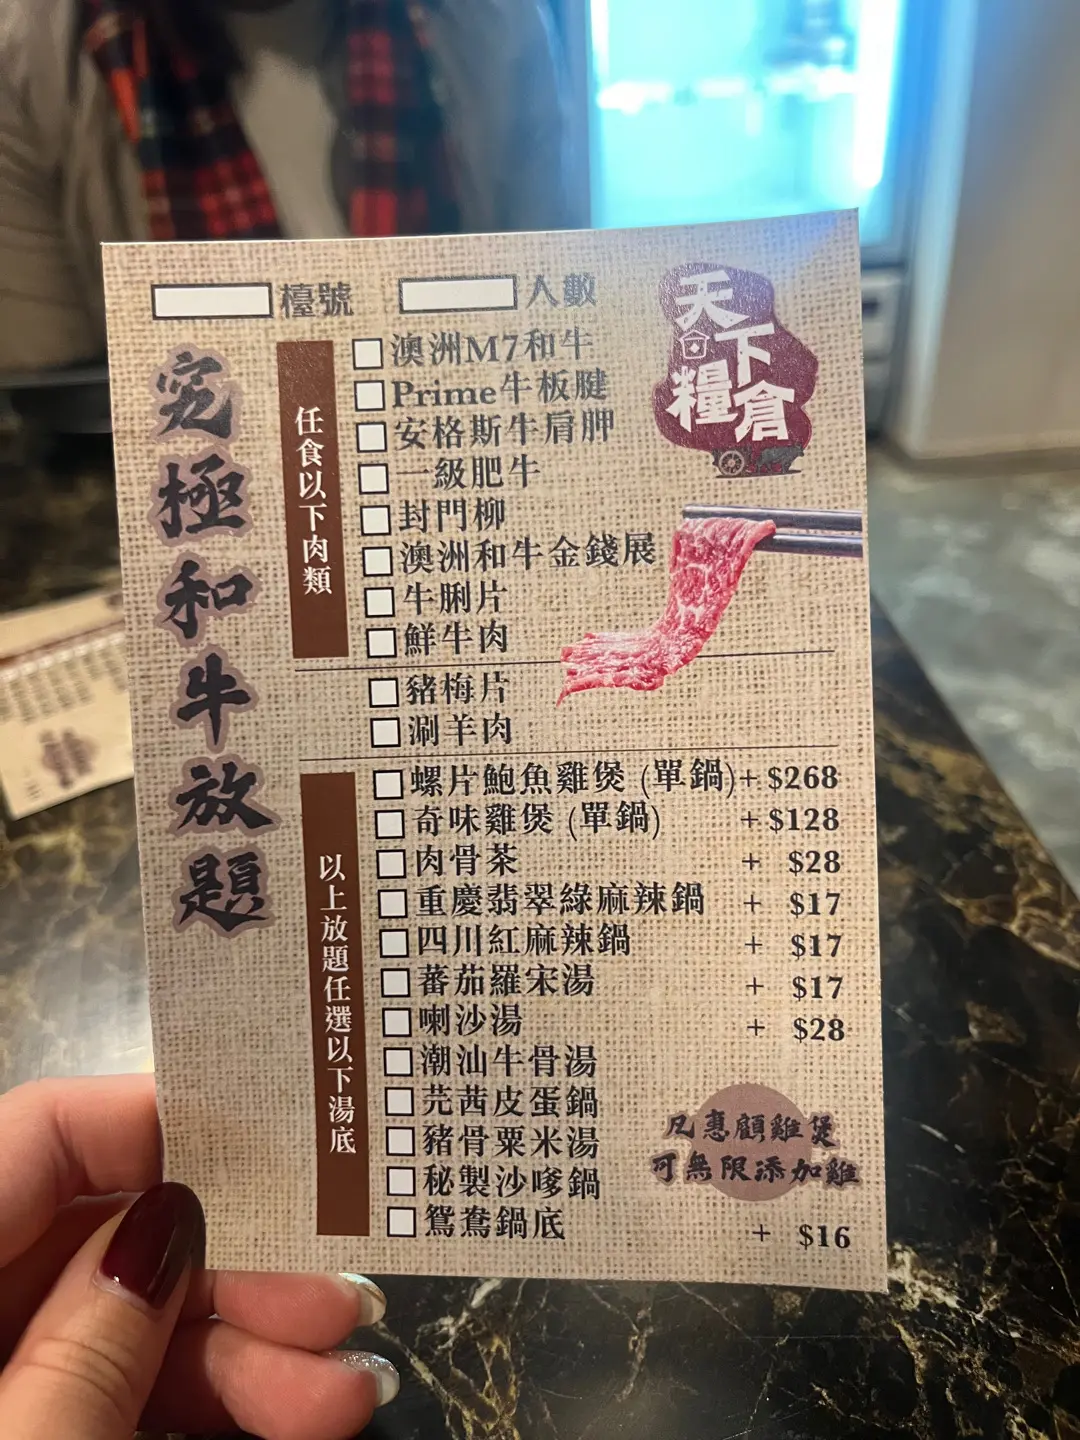 檯號 人數
天下糧倉
究極和牛放題
任食以下肉類
澳洲M7和牛
Prime牛板腱
安格斯牛肩胛
一級肥牛
封門柳
澳洲和牛金錢展
牛脷片
鮮牛肉
豬梅片
涮羊肉
以上放題任選以下湯底
螺片鮑魚雞煲 (單鍋)+ $268
奇味雞煲 (單鍋) + $128
肉骨茶 + $28
重慶翡翠綠麻辣鍋 + $17
四川紅麻辣鍋 + $17
蕃茄羅宋湯 + $17
喇沙湯 + $28
潮汕牛骨湯
芫茜皮蛋鍋
豬骨粟米湯
秘製沙嗲鍋
鴛鴦鍋底 + $16
凡惠顧雞煲
可無限添加雞